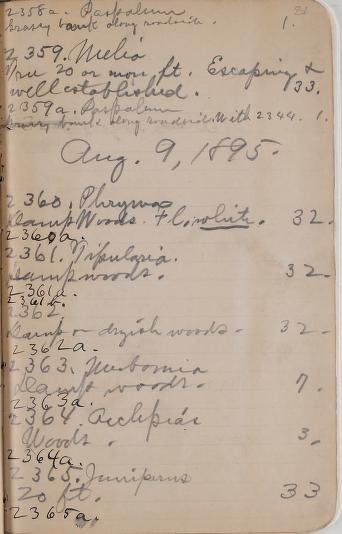 2358a. Paspalum
Grassy bank along roadside. 1.
2359. Melia
Tree 20 or more ft. Escaping &
well established. 33.
2359a. Paspalum
Grassy bank along roadside. With 2344. 1.
Aug. 9, 1895.
2360. Phryma
Damp Woods. Fl. white. 32.
2360a.
2361. Tipularia.
Damp woods. 32.
2361a.
2361b.
2362.
Damp or dryish woods. 32.
2362a.
2363. Meibomia
Damp woods. 7.
2363a.
2364 Asclepias
Woods. 3.
2364a.
2365. Juniperus
20 ft. 33
2365a.